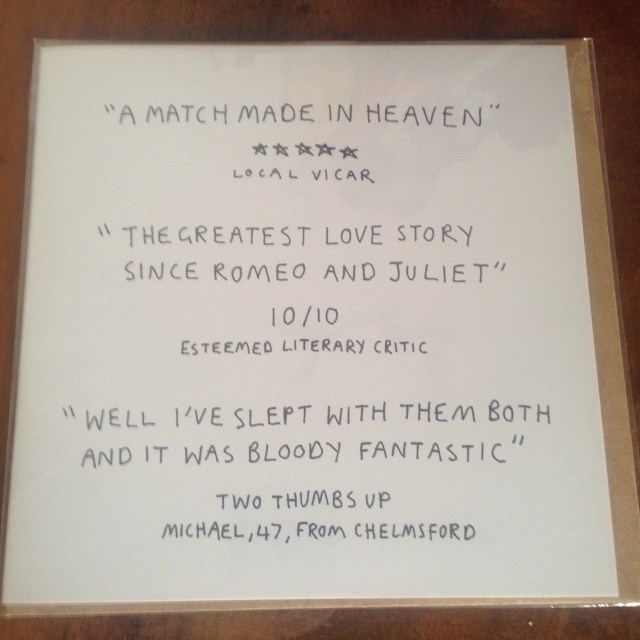 "A MATCH MADE IN HEAVEN"
☆☆☆☆☆
LOCAL VICAR
"THE GREATEST LOVE STORY
SINCE ROMEO AND JULIET"
10/10
ESTEEMED LITERARY CRITIC
"WELL I'VE SLEPT WITH THEM BOTH
AND IT WAS BLOODY FANTASTIC"
TWO THUMBS UP
MICHAEL, 47, FROM CHELMSFORD